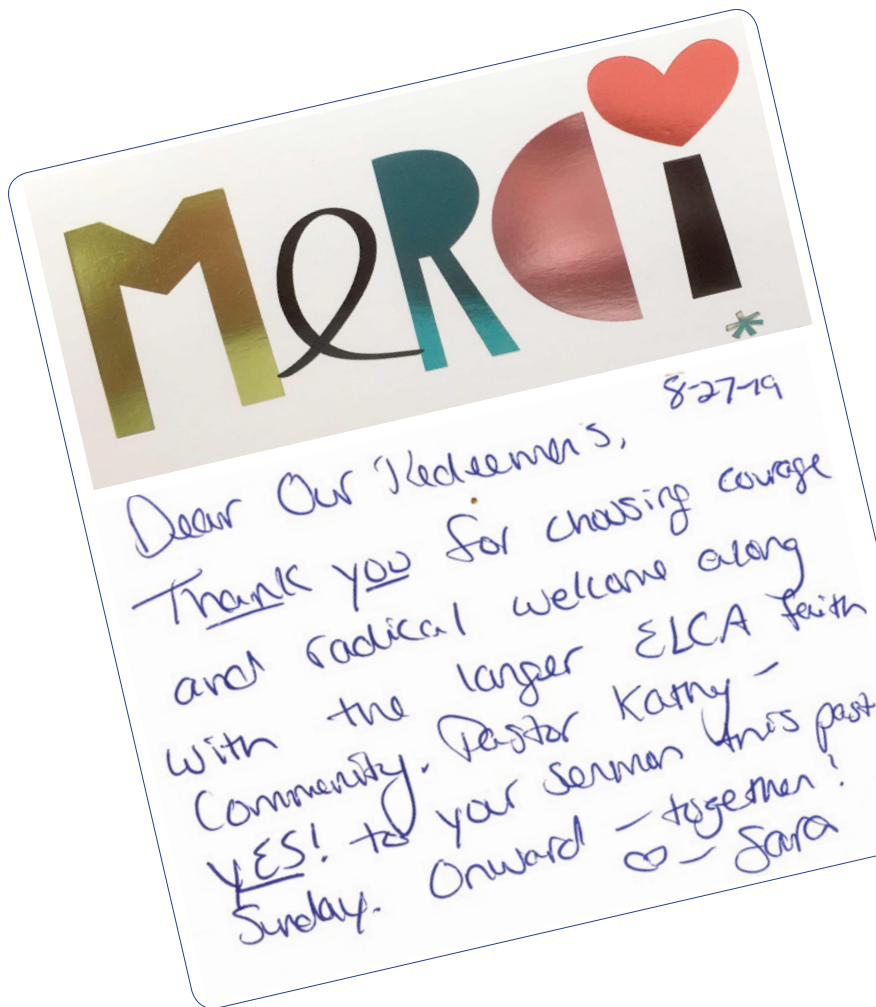 MeRCi
8-27-19
Dear Our Redeemer's,
Thank you for choosing courage
and radical welcome along
with the larger ELCA faith
Community. Pastor Kathy –
YES! to your sermon this past
Sunday. Onward – together!
♡ – Sara